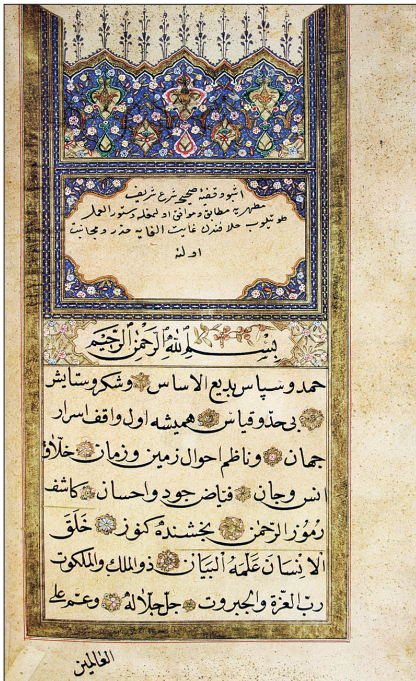 اشبو وقفیهٔ صحیح شرع شریف
مطهره یه مطابق و موافق اولمغله دستور العمل
طوتیلوب خلافندن غایت الغایه حذر و مجانبت
اولنه
بِسْمِ اللهِ الرَّحْمٰنِ الرَّحِيمِ
حمد و سپاس بدیع الاساس و شکر و ستایش
بی حد و قیاس همیشه اول واقف اسرار
جهان و ناظم احوال زمین و زمان خلاق
انس و جان فیاض جود و احسان کاشف
رُمُوز الرَّحْمٰن بخشندهٔ کنوز خَلَقَ
الاِنْسَانَ عَلَّمَهُ الْبَيَانَ ذو الملك والملكوت
ربّ العزّة والجبروت جلّ جلاله وعمّ علی
العالمین